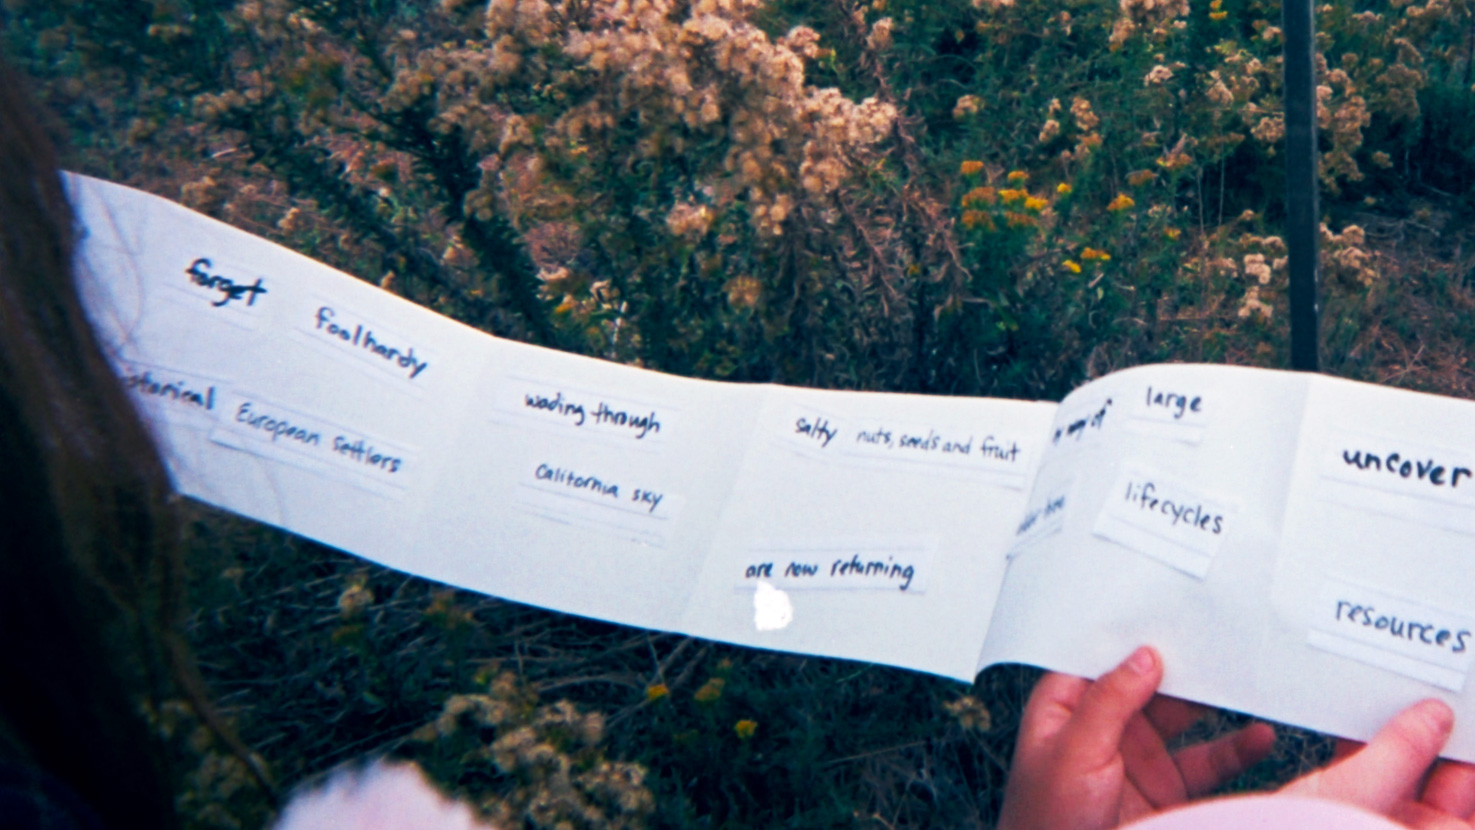 forget
foolhardy
European settlers
wading through
California sky
salty nuts, seeds and fruit
are now returning
large
lifecycles
uncover
resources